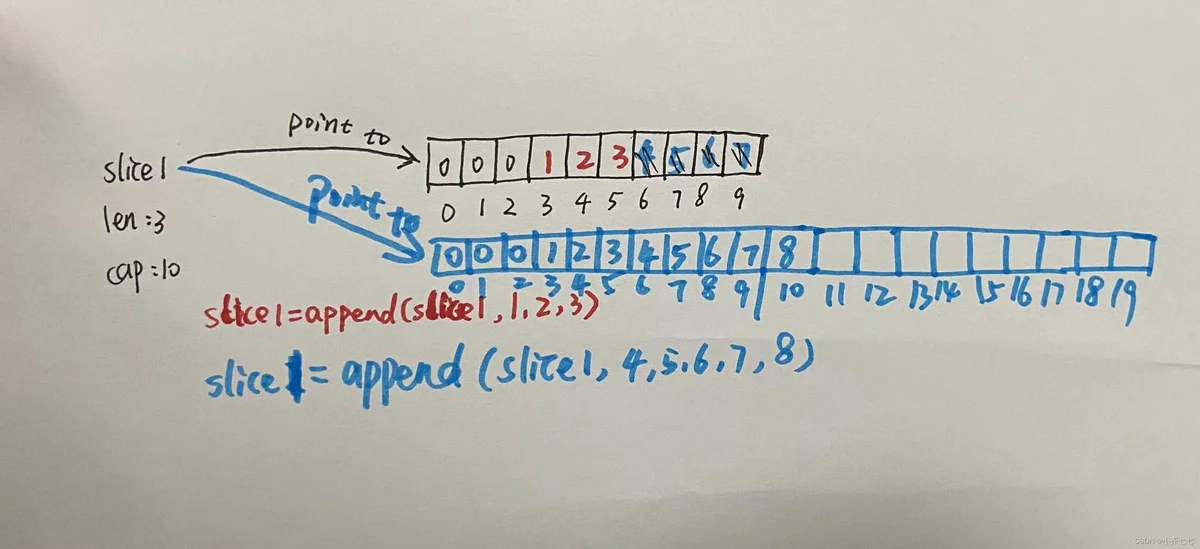 point to
slice1
0 0 0 1 2 3
0 1 2 3 4 5 6 7 8 9
len:3
point to
0 0 0 1 2 3 4 5 6 7 8
0 1 2 3 4 5 6 7 8 9 10 11 12 13 14 15 16 17 18 19
cap:10
slice1=append(slice1,1,2,3)
slice1=append(slice1,4,5,6,7,8)
CSDN @小乔七七